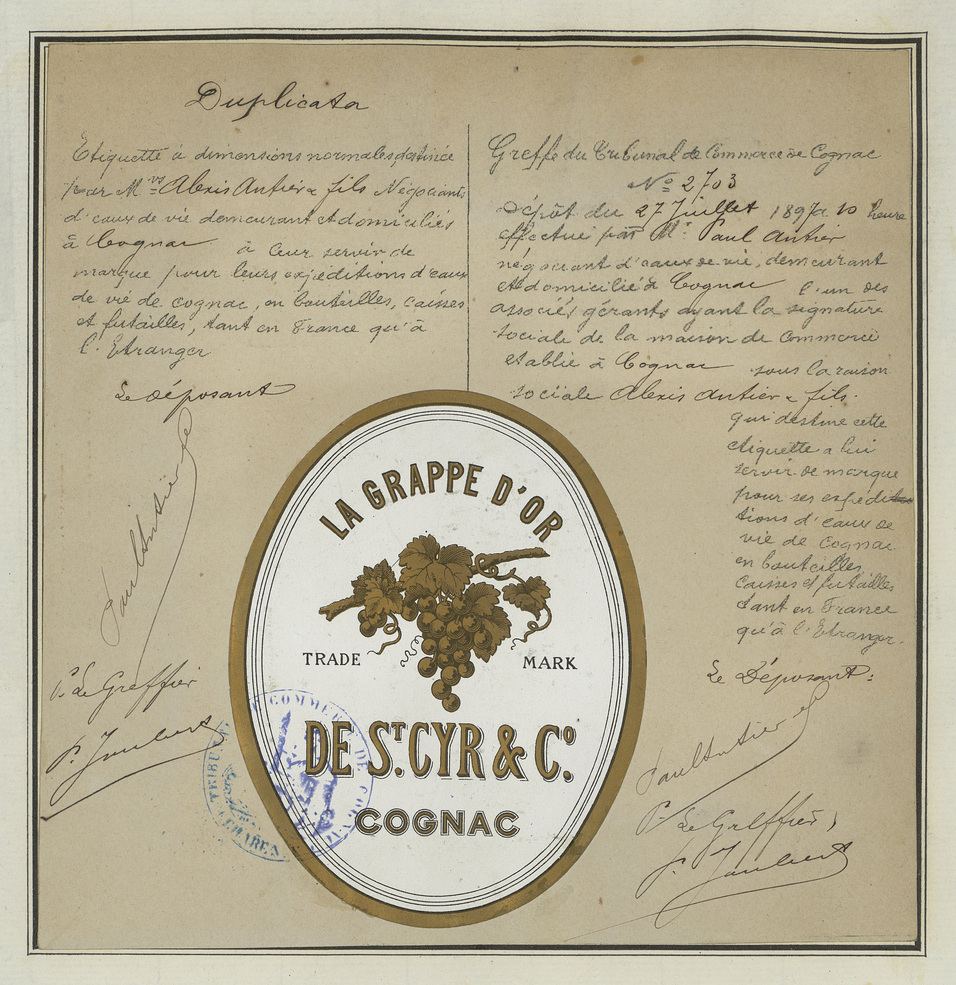 Duplicata
Etiquette à dimensions normales destinée
par M^rs Alexis Antier & fils Négociants
d'eaux de vie demeurant et domiciliés
à Cognac à leur servir de
marque pour leurs expéditions d'eaux
de vie de cognac, en bouteilles, caisses
et futailles, tant en France qu'à
l'Etranger
Le déposant
Paul Antier
P. Le Greffier
Greffe du Tribunal de Commerce de Cognac
N° 2703
Dépôt du 27 Juillet 1897 à 10 heure
effectué par M. Paul Antier
négociant d'eaux de vie, demeurant
et domicilié à Cognac l'un des
associés gérants ayant la signature
sociale de la maison de commerce
établie à Cognac sous la raison
sociale Alexis Antier & fils.
qui destine cette
étiquette a lui
servir de marque
pour ses expédi
tions d'eaux de
vie de cognac
en bouteilles,
caisses et futailles
tant en France
qu'à l'Etranger.
Le Déposant:
Paul Antier
P. Le Greffier,
LA GRAPPE D'OR
TRADE MARK
DE ST. CYR & Co.
COGNAC
COMMERCE DE